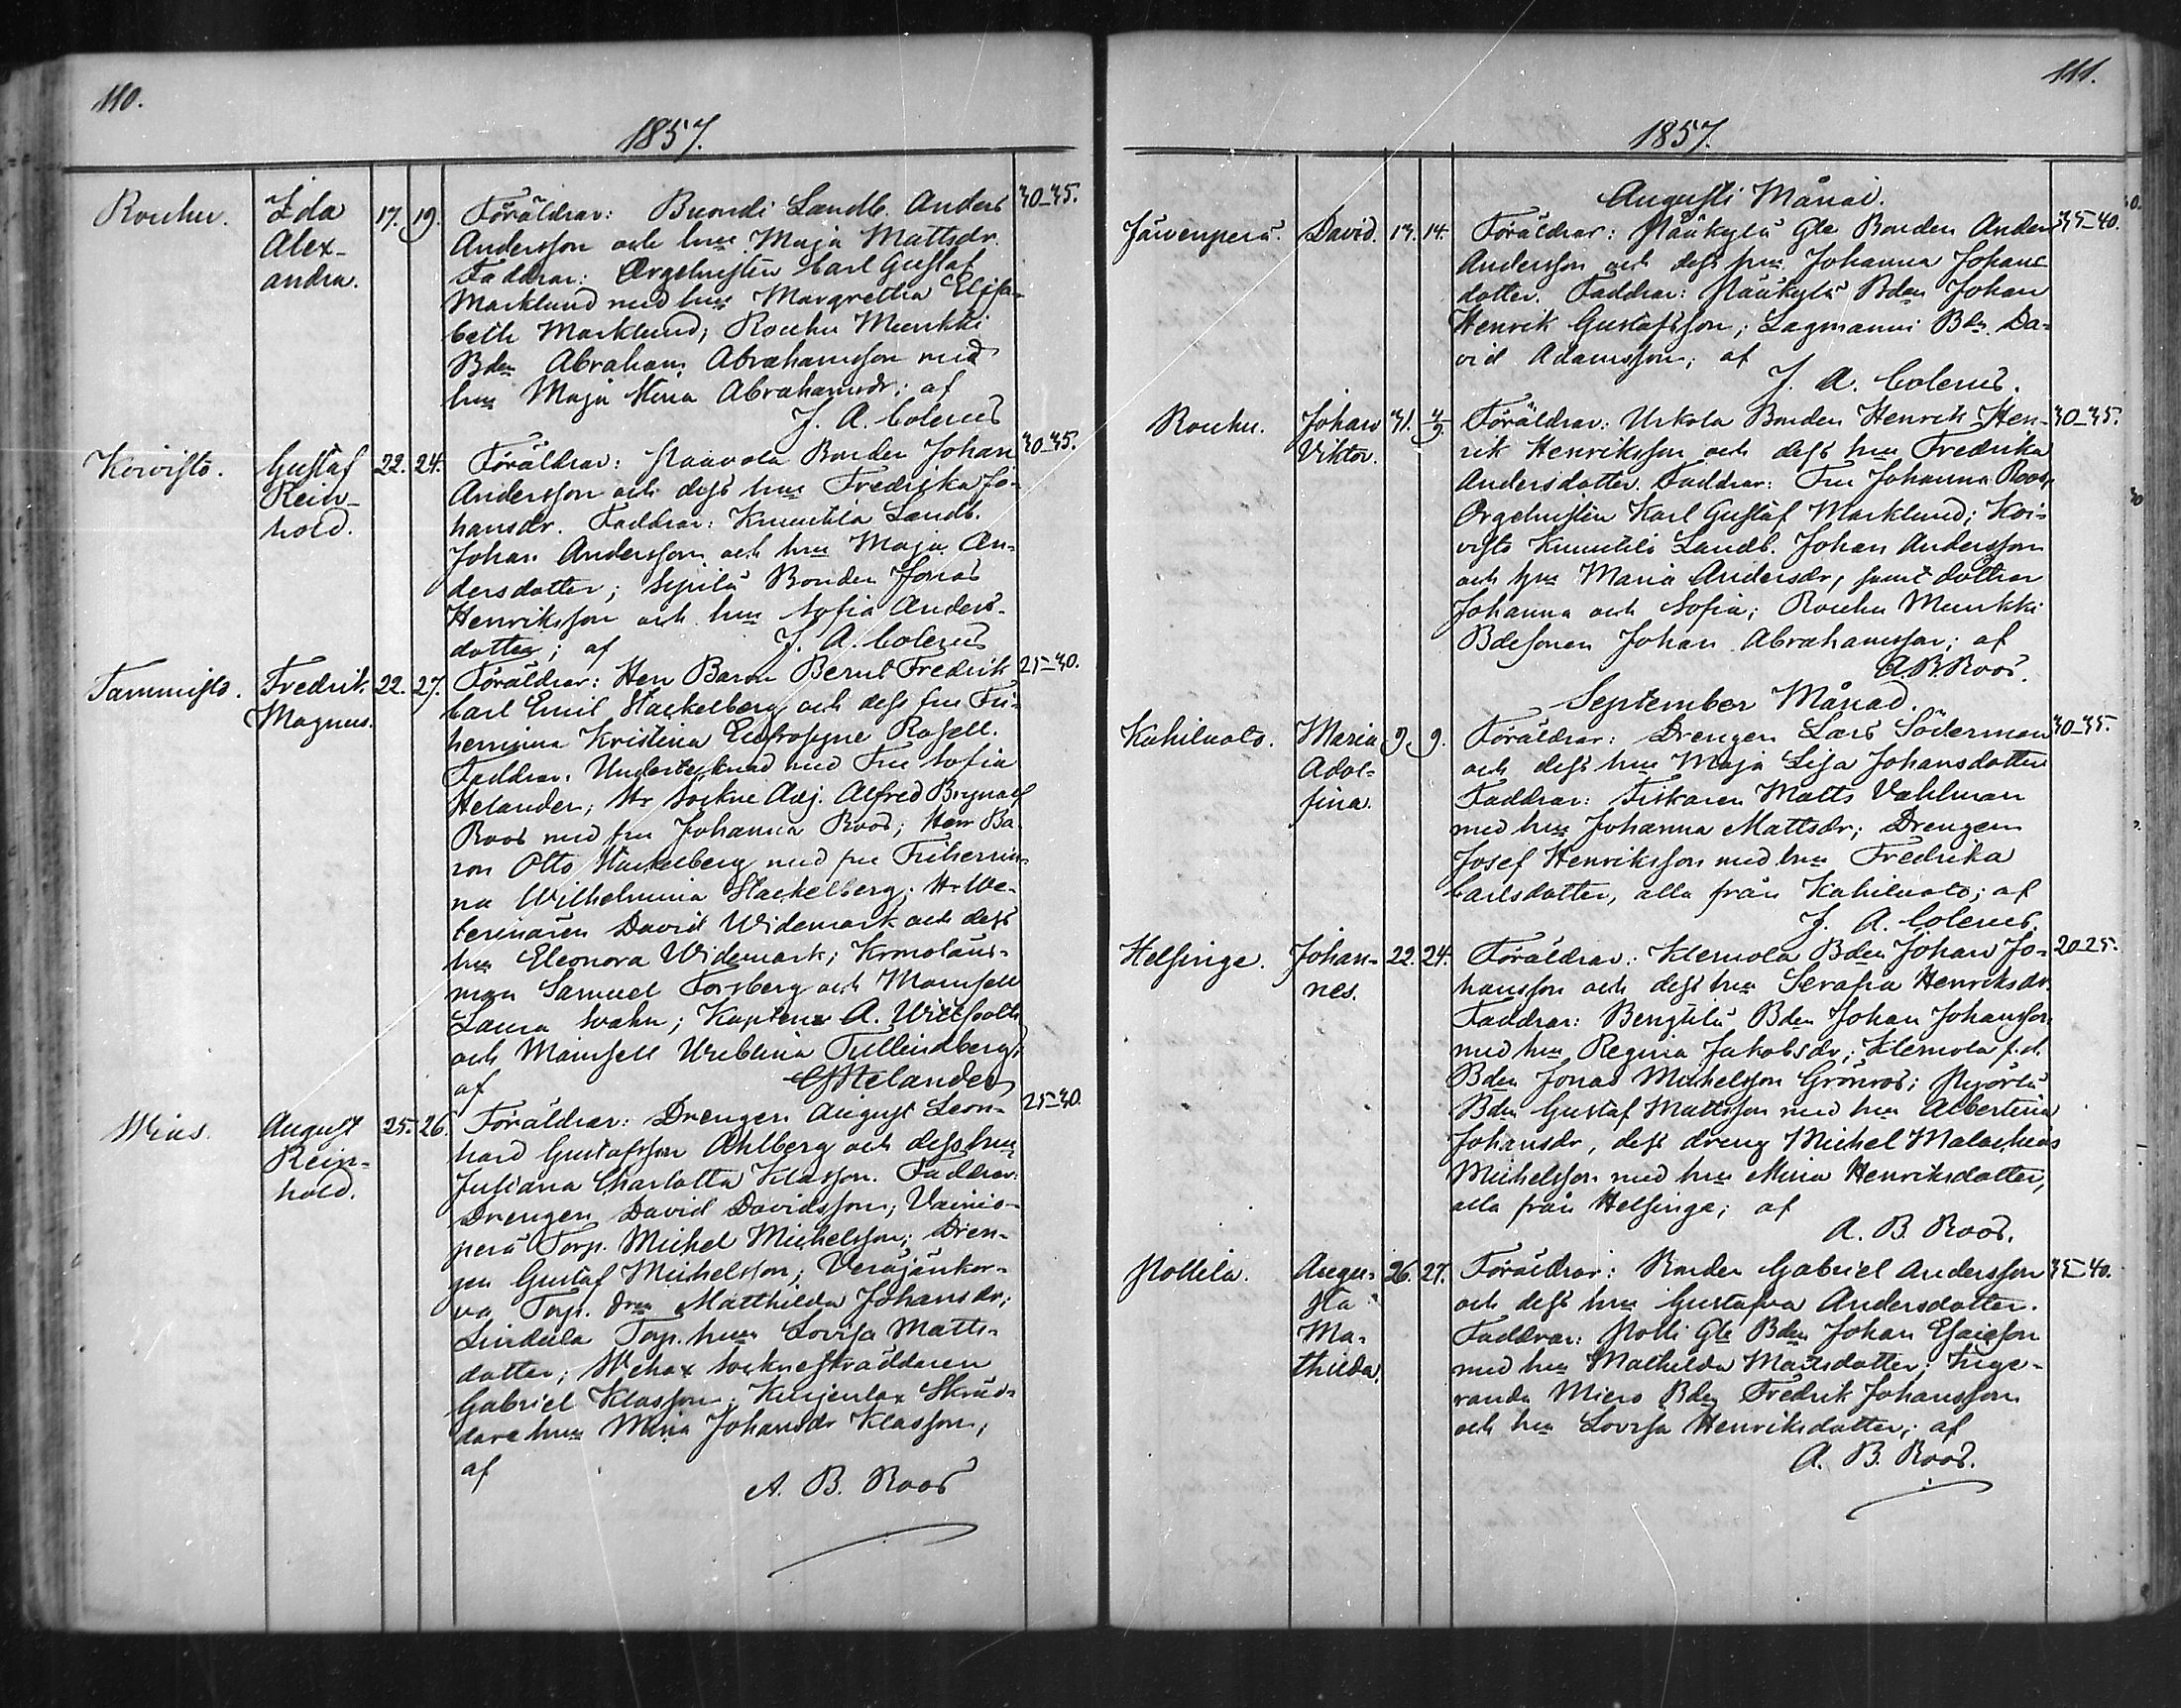 110.
1857.
Rouhu. Ida Alex-andra. 17. 19. Föräldrar: Buondi Landb. Anders 30-35.
Andersson och hu Maja Mattsdr.
Faddrar: Orgelnisten Carl Gustaf
Marklund med hu Margretha Elisa-
beth Marklund; Rouhu Munkki
Bden Abraham Abrahamsson med
hu Maja Stina Abrahamsdr; af
J. A. Colerus
Koivisto. Gustaf Rein-hold. 22. 24. Föräldrar: Paavola Bonden Johan 30-35.
Andersson och dess hu Fredrika Jo-
hansdr. Faddrar: Knuutila Landb.
Johan Andersson och hu Maja An-
dersdotter; Sepilä Bonden Jonas
Henriksson och hu Sofia Anders-
dotter; af J. A. Colerus
Tammisto. Fredrik Magnus. 22. 27. Föräldrar: Herr Baron Bernt Fredrik 25-30.
Carl Emil Stackelberg och dess fru Fri-
herrinna Kristina Eufrosyne Rosell.
Faddrar: Undertecknad med Fru Sofia
Helander; Hr Sockne Adj. Alfred Brynolf
Roos med fru Johanna Roos; Herr Ba-
ron Otto Stackelberg med fru Friherrin-
na Wilhelmina Stackelberg; Hr Ve-
terinären David Widemark och dess
hu Eleonora Widemark; Kronoläns-
man Samuel Forsberg och Mamsell
Laura Svahn; Kapten A.
och Mamsell
af Helander
Wias. August Rein-hold. 25. 26. Föräldrar: Drengen August Leon- 25-30.
hard Gustafsson Ahlberg och dess hu
Juliana Charlotta Klasson. Faddrar:
Drengen David Davidsson; Vainio-
perä Torp. Michel Michelsson; Dren-
gen Gustaf Michelsson; Veräjänkor-
va Torp. Matthilda Johansdr;
Lindula Torp. hu Lovisa Matts-
dotter; Wehax Sockneskräddaren
Gabriel Klasson; Kurjenlax Skräd-
dare hu Maria Johansdr Klasson;
af
A. B. Roos
111.
1857.
Augusti Månad.
Järvenperä. David. 13. 14. Föräldrar: Pääkylä Gla Bonden Anders 35-40.
Andersson och dess hu Johanna Johans-
dotter. Faddrar: Pääkylä Bden Johan
Henrik Gustafsson; Lagmanni Bdn Da-
vid Adamsson; af
J. A. Colerus.
Rouhu. Johan Viktor. 31. 4/9. Föräldrar: Urkola Bonden Henrik Hen- 30-35.
rik Henriksson och dess hu Fredrika
Andersdotter. Faddrar: Fru Johanna Roos,
Orgelnisten Karl Gustaf Marklund; Koi-
visto Knuutila Landb. Johan Andersson
och hu Maria Andersdr, samt döttrar
Johanna och Sofia; Rouhu Munkki
Bdesonen Johan Abrahamsson; af
A. B. Roos.
September Månad.
Kahiluoto. Maria Adol-fina. 9. 9. Föräldrar: Drengen Lars Söderman 30-35.
och dess hu Maja Lisa Johansdotter
Faddrar: Fiskaren Matts Vahlman
med hu Johanna Mattsdr; Drengen
Josef Henriksson med hu Fredrika
Carlsdotter, alla från Kahiluoto; af
J. A. Colerus.
Helsinge. Johan-nes. 22. 24. Föräldrar: Klemola Bden Johan Jo- 20-25.
hansson och dess hu Serafia Henriksdr.
Faddrar: Bengtilä Bden Johan Johansson
med hu Regina Jakobsdr; Klemola f.d.
Bden Jonas Michelsson Grönros;
Bden Gustaf Mattsson med hu Albertina
Johansdr, dess dreng Michel Malachias
Michelsson med hu Mina Henriksdotter,
alla från Helsinge; af
A. B. Roos.
Pollela. Augu-sta Ma-thilda. 26. 27. Föräldrar: Bonden Gabriel Andersson 35-40.
och dess hu Gustafva Andersdotter.
Faddrar: Polli Gla Bden Johan Esaiasson
med hu Mathilda Mattsdotter; Inge-
randa Miero Bden Fredrik Johansson
och hu Lovisa Henriksdotter; af
A. B. Roos.